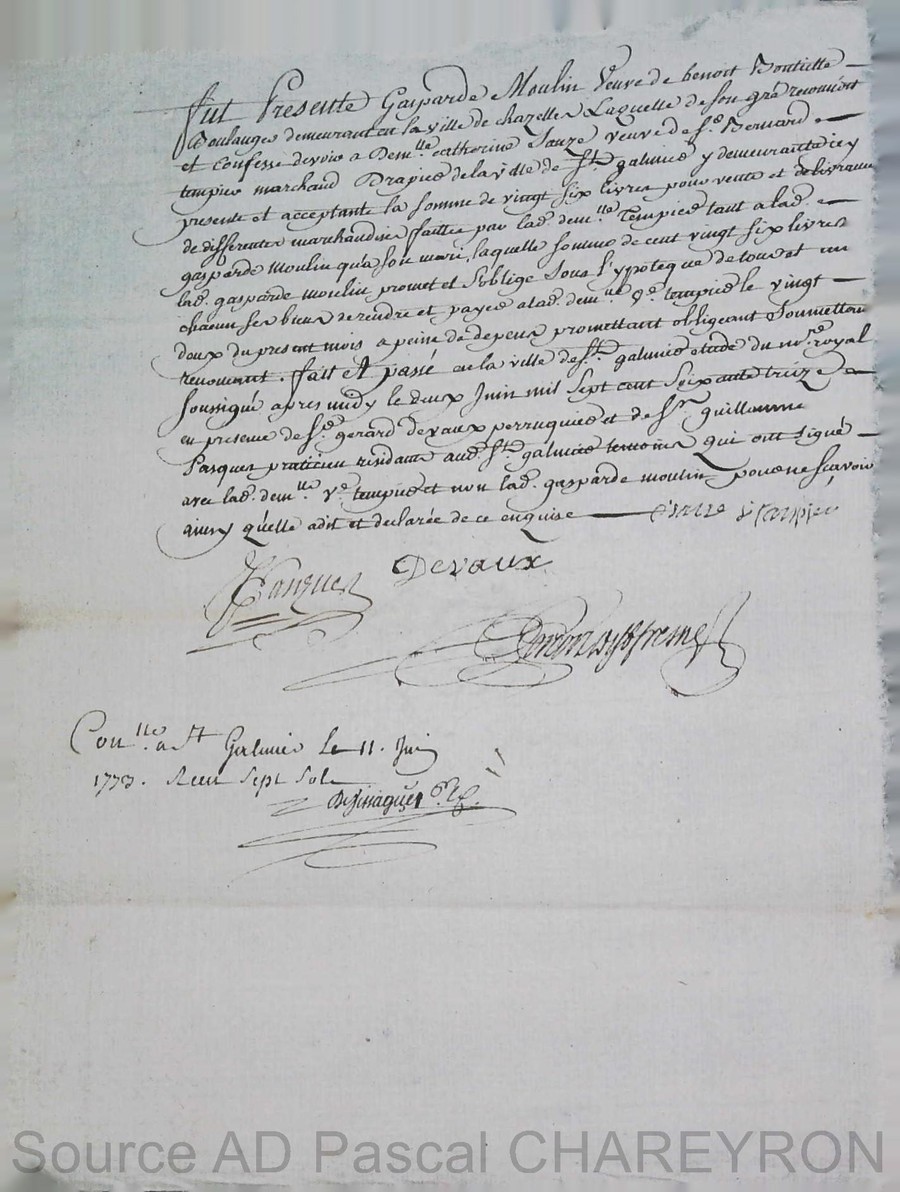 fut Presente Gasparde Moulin Veuve de benoit
Boulanger demeurant en la ville de chazelles Laquelle de son gré reconnoit
et Confesse devoir a Dem.lle catherine Sauze veuve de S.r Bernard
tempier marchand Drapier de la ville de S.t galmier y demeurante icy
presente et acceptante la somme de vingt six livres pour vente et delivrance
de differentes marchandises faittes par lad. dem.lle Tempier tant a lad.
gasparde moulin qu'a son mari, laquelle somme de cent vingt six livres
lad. gasparde moulin promet et s'oblige sous l'ypoteque de tous et un
chacun ses biens de rendre et payer a lad. dem.lle V.e tempier le vingt
deux du present mois a peine de depens promettant obligeant Soumettant
renoncant. fait et passé en la ville de S.t galmier etude du no.re royal
soussigné apres midy le deux Juin mil Sept cent Soixante treize
en presence de S.r gerard Devaux perruquier et de S.r guillaume
Pasquet praticien residants aud. S.t galmier temoins qui ont signé
avec lad. dem.lle V.e tempier et non lad. gasparde moulin pour ne scavoir
ainsy qu'elle a dit et declarée de ce enquise
Devaux
Con.lle a S.t Galmier Le 11. Juin
1773. Recu Sept Sols
Source AD Pascal CHAREYRON